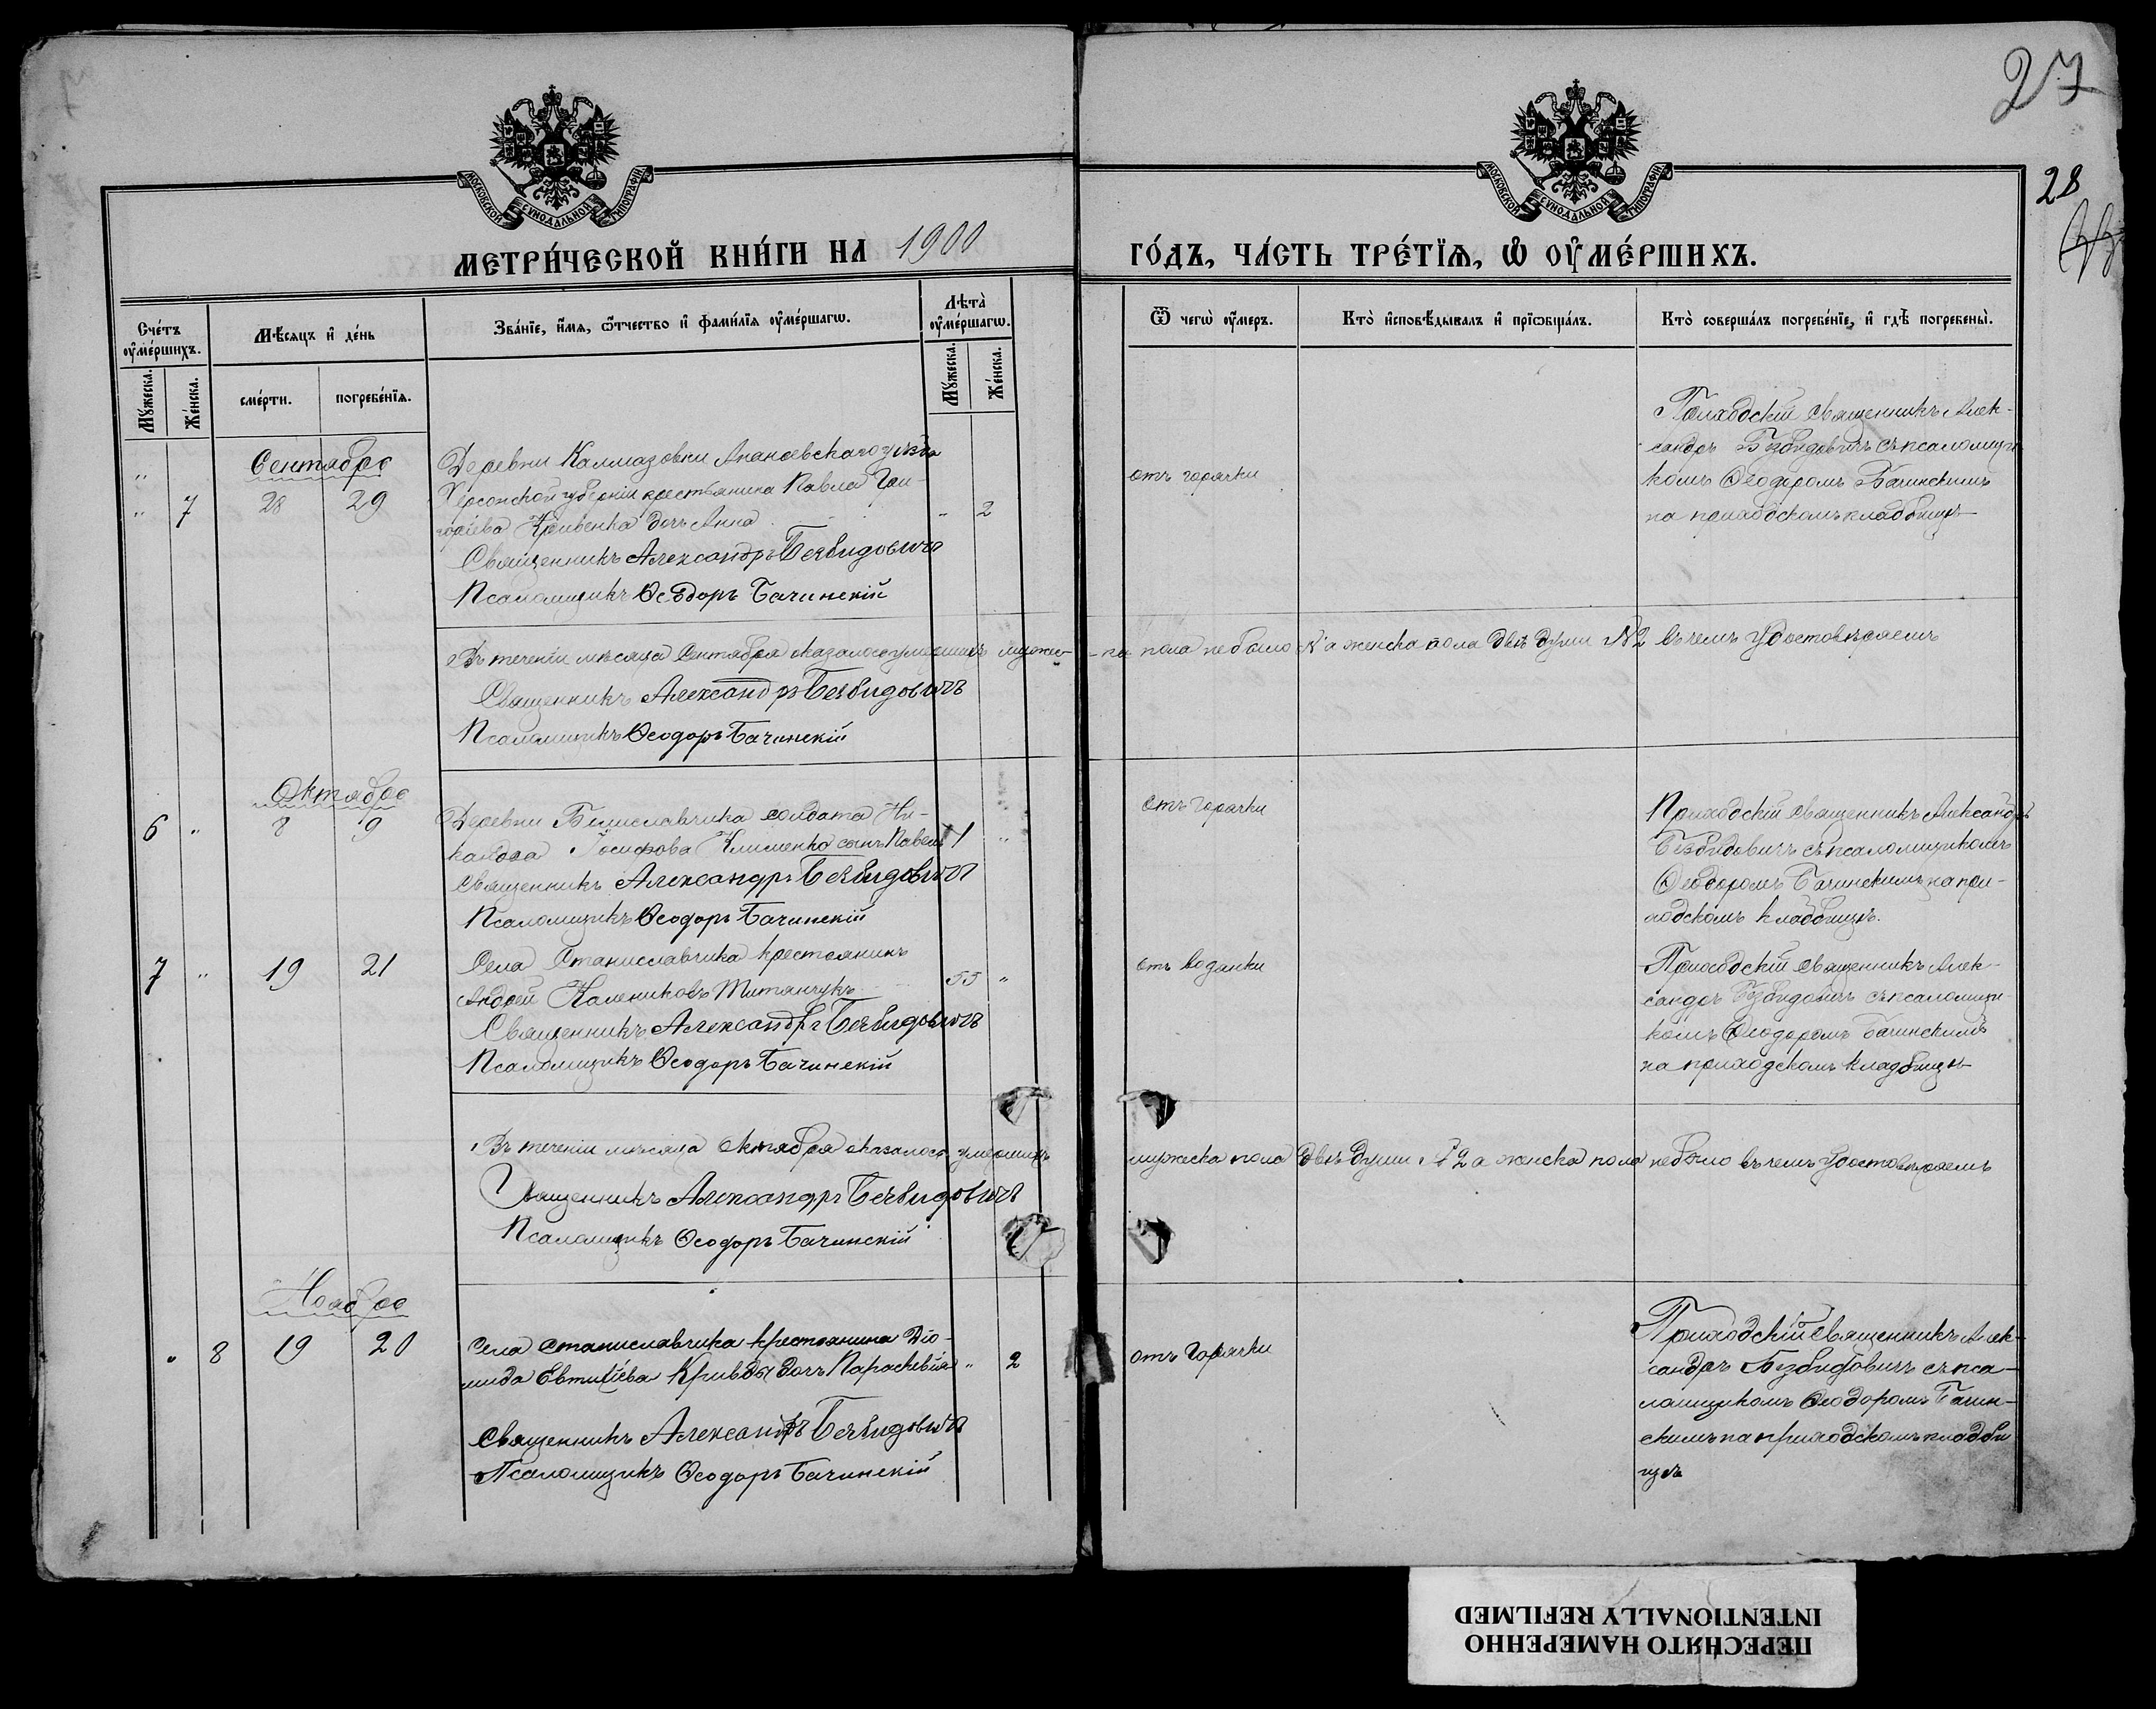 27
28
МОСКОВСКОЙ СѴНОДАЛЬНОЙ ТИПОГРАФІИ
МОСКОВСКОЙ СѴНОДАЛЬНОЙ ТИПОГРАФІИ
МЕТРИ́ЧЕСКОЙ КНИ́ГИ НА 1900
ГО́ДЪ, ЧА́СТЬ ТРЕ́ТЇѦ, Ѡ҆ ОУ҆МЕ́РШИХЪ.
Сче́тъ оу҆ме́ршихъ.
Мѣ́сяцъ и҆ де́нь
Зва́нїе, и҆́мѧ, ѻ҆́тчество и҆ фами́лїѧ оу҆ме́ршагѡ.
Лѣта̀ оу҆ме́ршагѡ.
Ѿ чегѡ̀ оу҆́меръ.
Кто̀ и҆сповѣ́дывалъ и҆ прїѡбща́лъ.
Кто̀ соверша́лъ погребе́нїе, и҆ гдѣ̀ погребены̀.
Мꙋ́жеска.
Же́нска.
сме́рти.
погребе́нїѧ.
Мꙋ́жеска.
Же́нска.
Сентябрь
" 7 28 29
Деревни Калмазовки Ананьевскаго уѣзда
Херсонской губерніи крестьянина Павла Гри-
горіева Кривенка дочь Анна
" 2
Священникъ Александръ Безвидовичъ
Псаломщикъ Ѳеодоръ Бачинскій
отъ горячки
Приходскій Священникъ Алек-
сандръ Безвидовичъ съ псаломщи-
комъ Ѳеодоромъ Бачинскимъ
на приходскомъ кладбищѣ
Въ теченіи мѣсяца Сентября оказалось умершихъ мужес-
ка пола не было а женска пола двѣ души №2 въ чемъ удостовѣряемъ
Священникъ Александръ Безвидовичъ
Псаломщикъ Ѳеодоръ Бачинскій
Октябрь
6 " 8 9
Деревни солдата Ни-
кандра Іосифова Клименко сынъ Павелъ
1 "
Священникъ Александръ Безвидовичъ
Псаломщикъ Ѳеодоръ Бачинскій
Отъ горячки
Приходскій Священникъ Александръ
Безвидовичъ съ псаломщикомъ
Ѳеодоромъ Бачинскимъ на при-
ходскомъ кладбищѣ.
7 " 19 21
Села Станиславчика крестьянинъ
Андрей Калениковъ Титянчукъ
55 "
Священникъ Александръ Безвидовичъ
Псаломщикъ Ѳеодоръ Бачинскій
отъ водянки
Приходскій Священникъ Алек-
сандръ Безвидовичъ съ псаломщи-
комъ Ѳеодоромъ Бачинскимъ
на приходскомъ кладбищѣ
Въ теченіи мѣсяца Октября оказалось умершихъ
мужеска пола двѣ души №2 а женска пола не было въ чемъ удостовѣряемъ
Священникъ Александръ Безвидовичъ
Псаломщикъ Ѳеодоръ Бачинскій
Ноябрь
" 8 19 20
Села Станиславчика крестьянина Діо-
мида Евтихіева Кривды дочь Параскевія
" 2
Священникъ Александръ Безвидовичъ
Псаломщикъ Ѳеодоръ Бачинскій
отъ горячки
Приходскій Священникъ Алек-
сандръ Безвидовичъ съ пса-
ломщикомъ Ѳеодоромъ Бачин-
скимъ на приходскомъ кладби
щѣ
ПЕРЕСНЯТО НАМЕРЕННО
INTENTIONALLY REFILMED